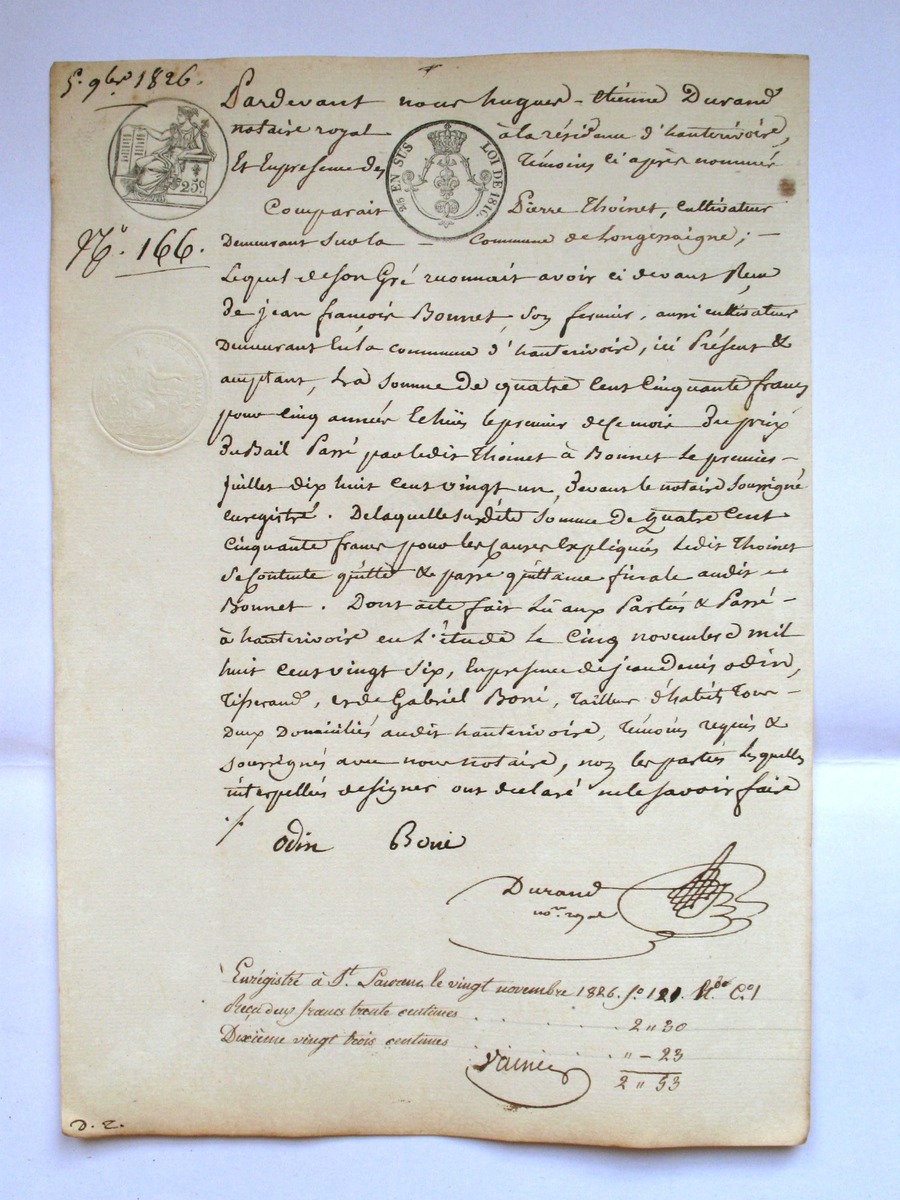 5. 9bre 1826.
Pardevant nous hugues-étienne Durand
notaire royal à la résidence d'hauterivoire,
Et En presence des témoins ci après nommés
25 EN SUS LOI DE 1816.
25c.
Comparait Pierre Thoinet, cultivateur
N.o 166.
Demeurant sur la commune de Longessaigne;
Lequel de son Gré reconnait avoir ci devant Reçu
de jean françois Bonnet son fermier, aussi cultivateur
Demeurant En la commune d'hauterivoire, ici Présent &
acceptant, La somme de quatre cent cinquante francs
pour cinq années Echües le premier de ce mois Du prix
Du Bail Passé par ledit Thoinet à Bonnet Le premier
juillet dix huit cent vingt un, Devant le notaire soussigné
enregistré. De laquelle susdite somme de quatre cent
cinquante francs pour les causes Expliquées Ledit Thoinet
se contente quitte & passe quittance finale audit
Bonnet. Dont acte fait Lû aux Parties & Passé
à hauterivoire en l'étude le cinq novembre mil
huit cent vingt six, En presence de jean Denis odin,
Tisserand, et de Gabriel Boni, tailleur d'habits Tous
Deux Domiciliés audit hauterivoire, témoins requis &
soussignés avec nous notaire, non les parties Lesquelles
interpellées de signer ont déclaré ne le savoir faire
./.
odin Boni
Durand
nore royal
Enrégistré à St. Laurent, le vingt novembre 1826. fo 121. Co 1
Reçu deux francs trente centimes 2 " 30
Dixième vingt trois centimes " - 23
2 " 53
D. Z.